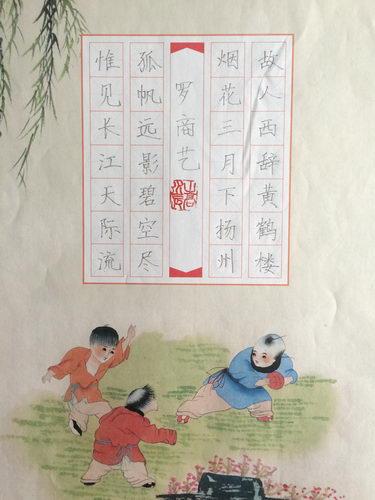 故人西辞黄鹤楼
烟花三月下扬州
罗商艺
孤帆远影碧空尽
惟见长江天际流